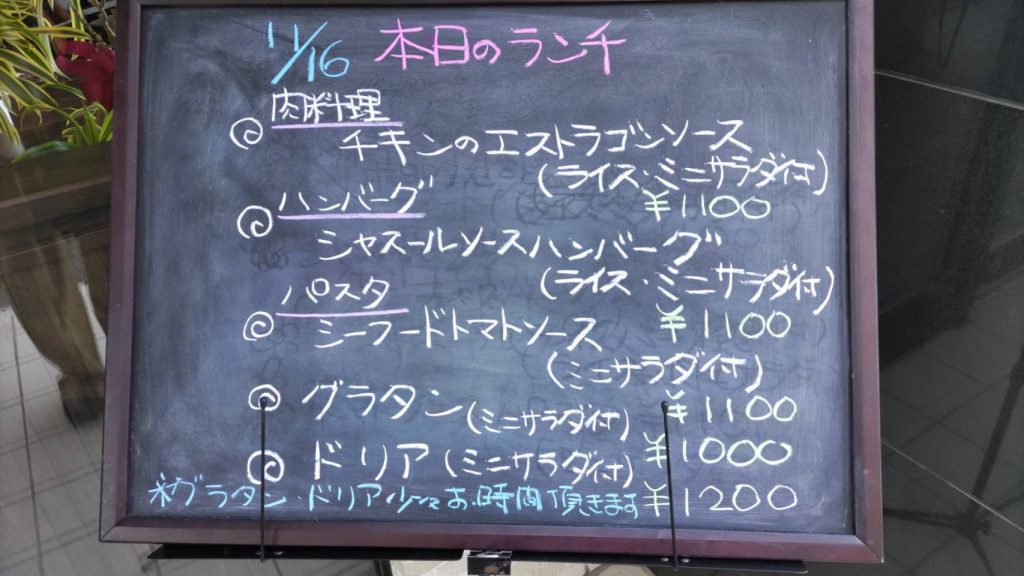 11/16 本日のランチ
肉料理
チキンのエストラゴンソース
(ライス・ミニサラダ付)
¥1100
ハンバーグ
シャスールソースハンバーグ
(ライス・ミニサラダ付)
パスタ
¥1100
シーフードトマトソース
(ミニサラダ付)
グラタン(ミニサラダ付) ¥1100
ドリア(ミニサラダ付) ¥1000
※グラタン・ドリア少々お時間頂きます ¥1200